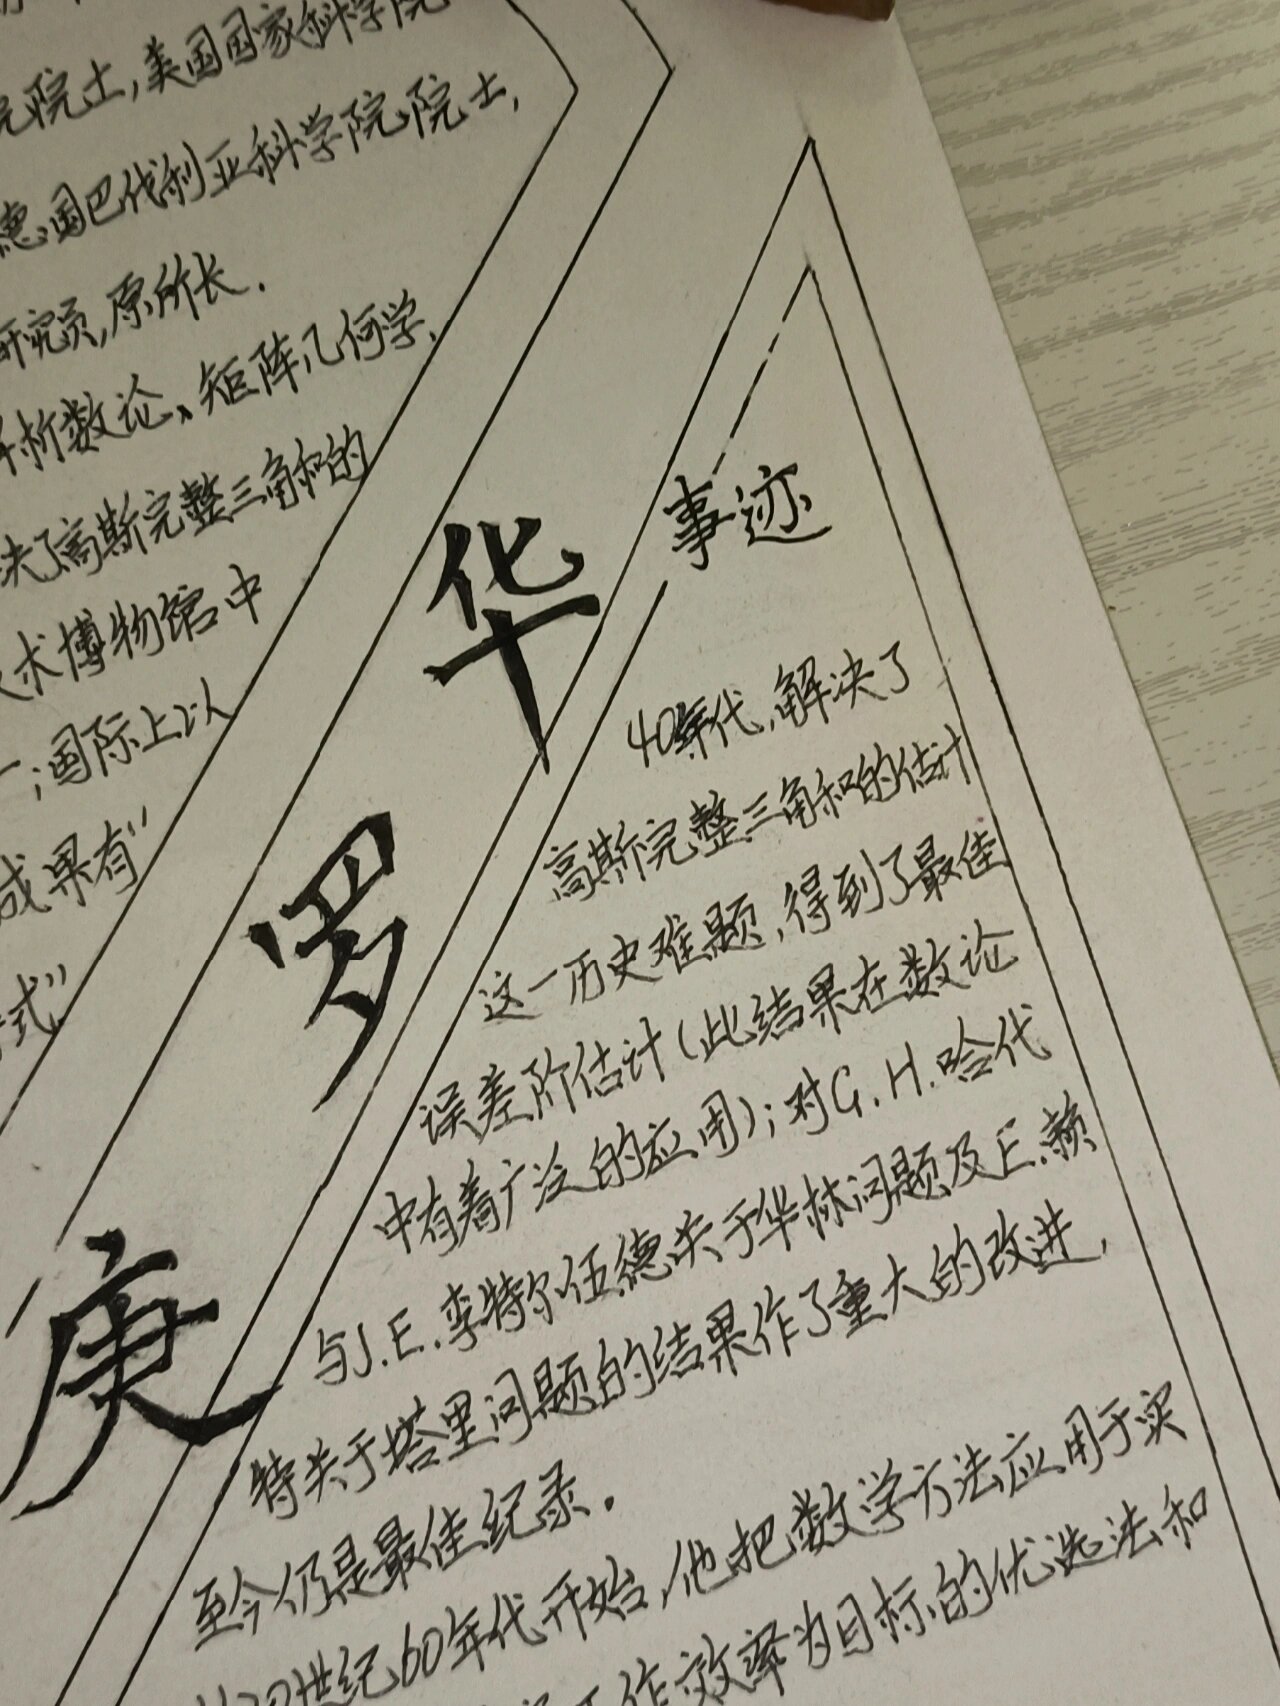 院院士,美国国家科学院
德国巴伐利亚科学院院士,
研究员,原所长.
解析数论、矩阵几何学,
决了高斯完整三角和的
术博物馆中
一;国际上以
成果有"
式"
华
罗
庚
事迹
40年代,解决了
高斯完整三角和的估计
这一历史难题,得到了最佳
误差阶估计(此结果在数论
中有着广泛的应用);对G.H.哈代
与J.E.李特尔伍德关于华林问题及E.赖
特关于塔里问题的结果作了重大的改进,
至今仍是最佳纪录.
世纪60年代开始,他把数学方法应用于实
工作效率为目标的优选法和